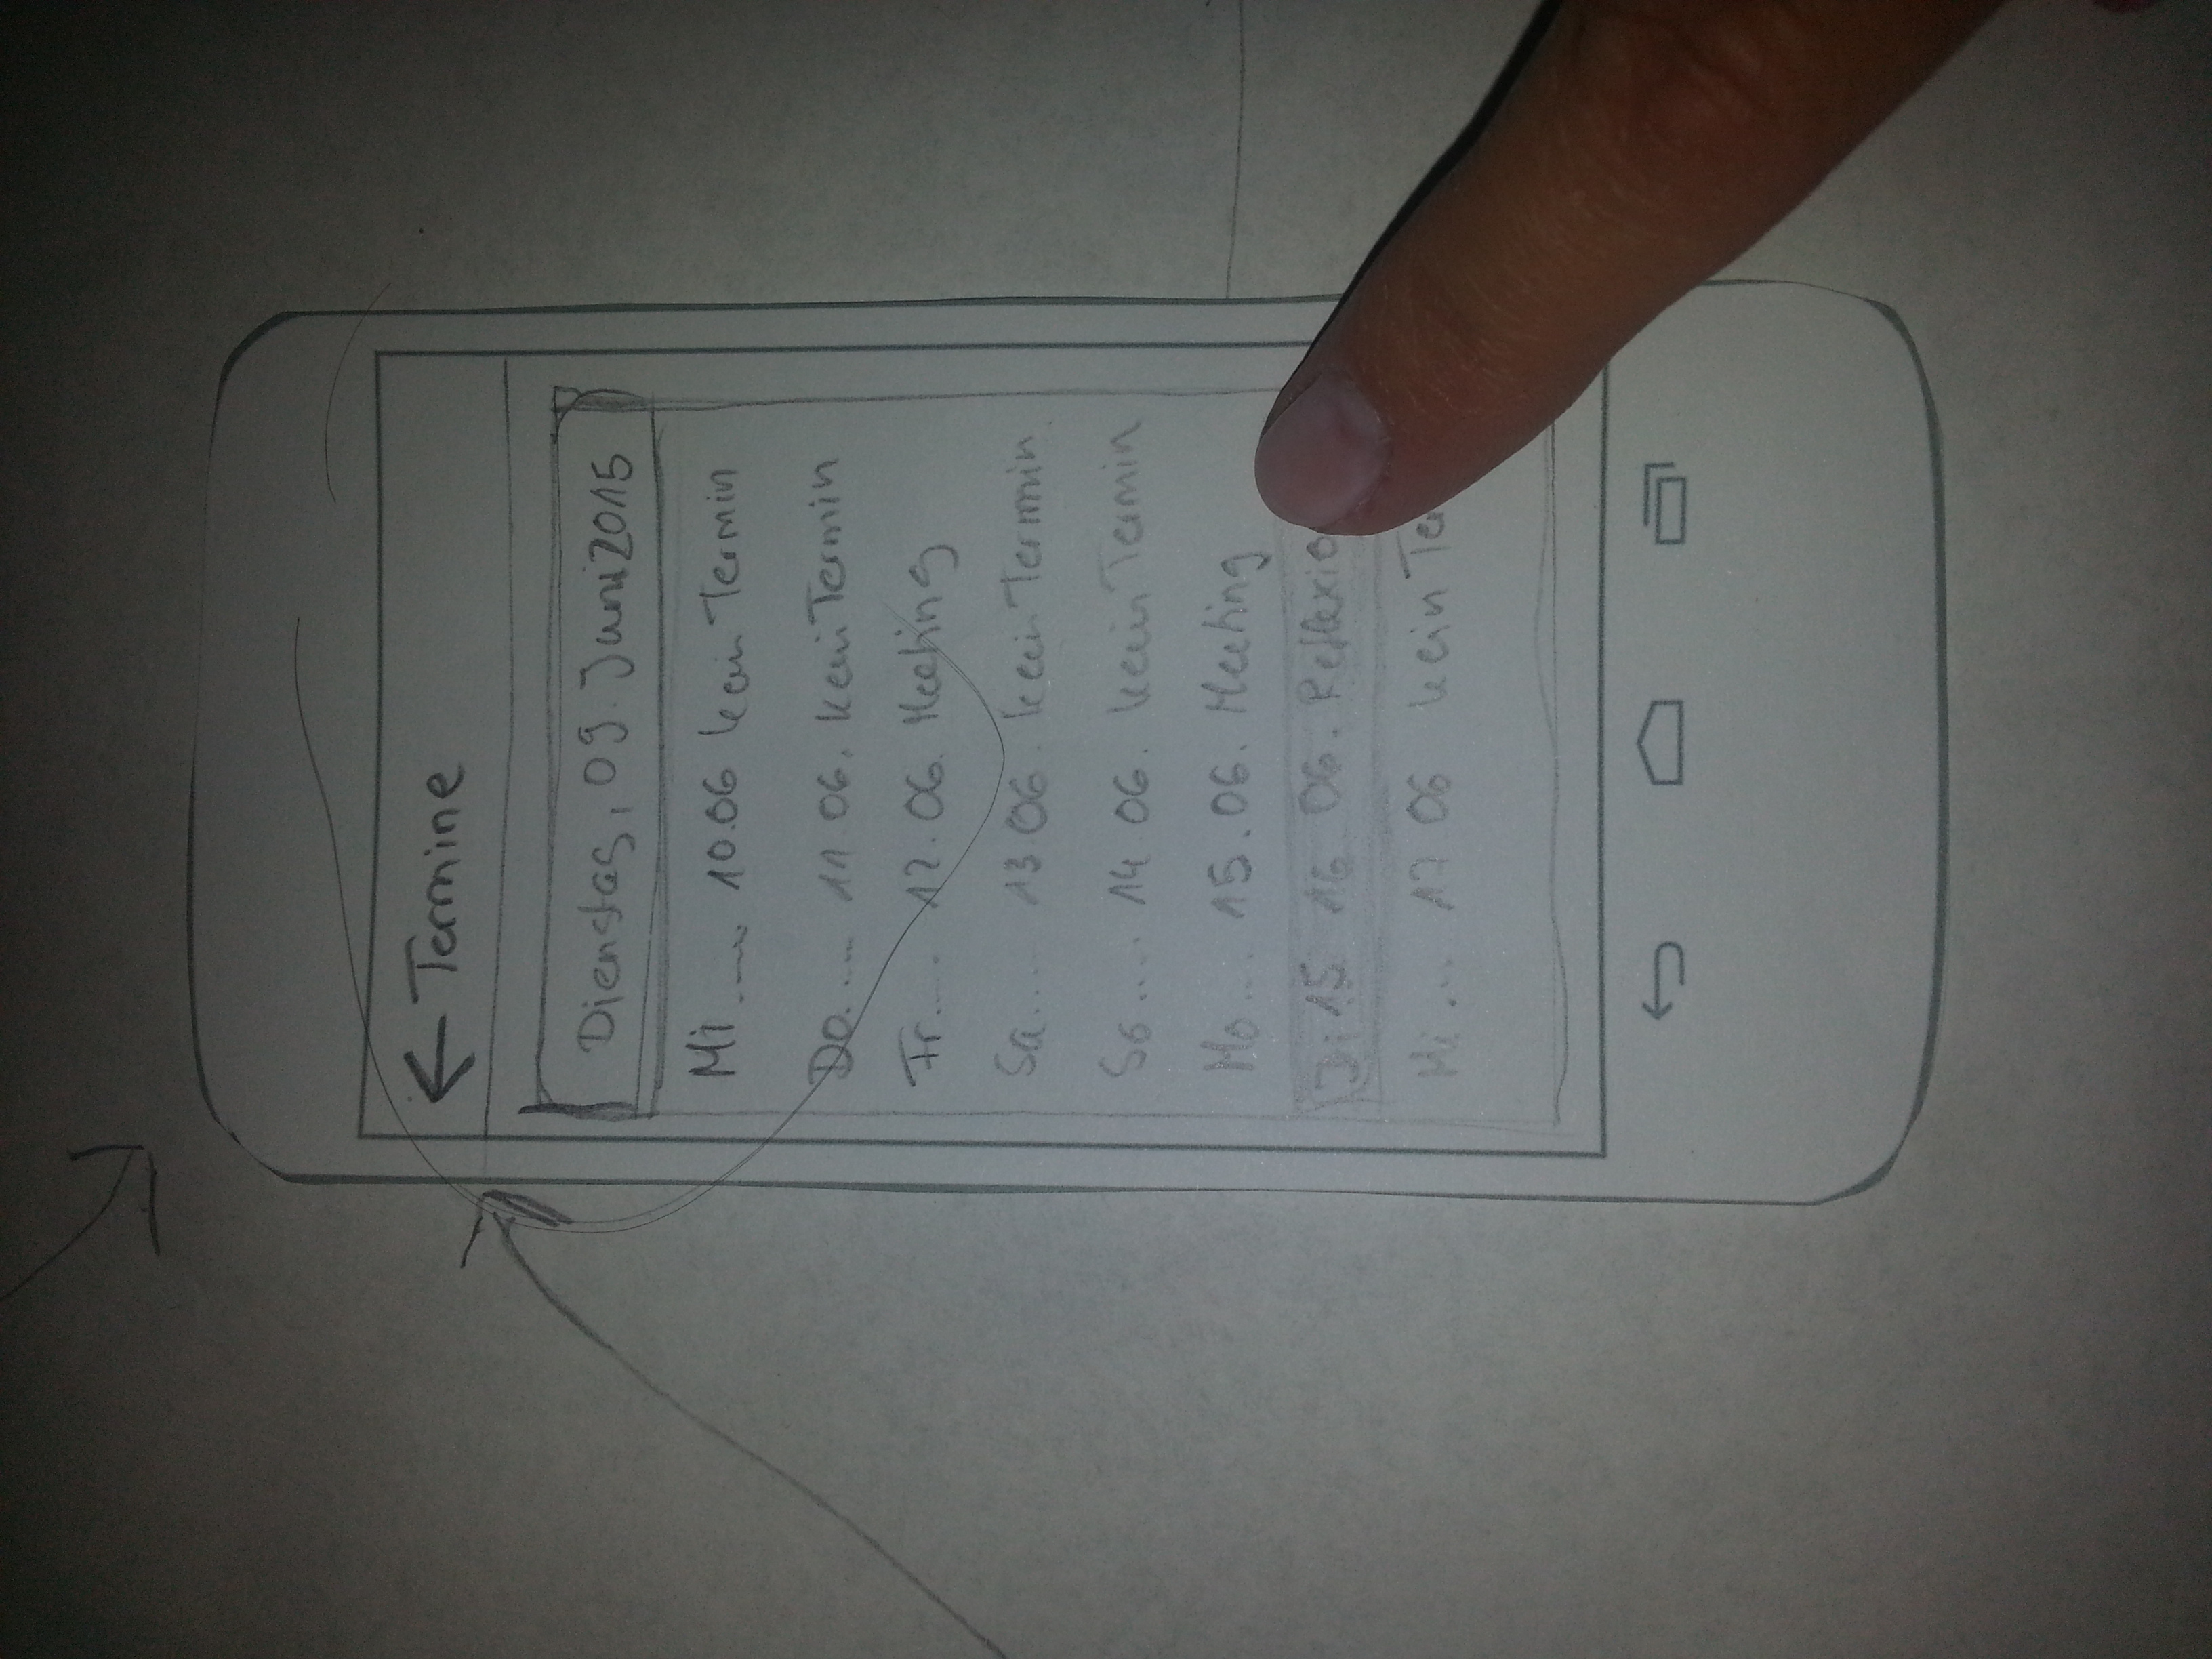 ← Termine
Dienstag, 09. Juni 2015
Mi ..... 10.06 kein Termin
Do ..... 11.06. kein Termin
Fr ..... 12.06. Meeting
Sa ..... 13.06. kein Termin
So ..... 14.06. kein Termin
Mo .... 15.06. Meeting
Di 15 16.06. Reflexio
Mi .... 17 06 kein Ter